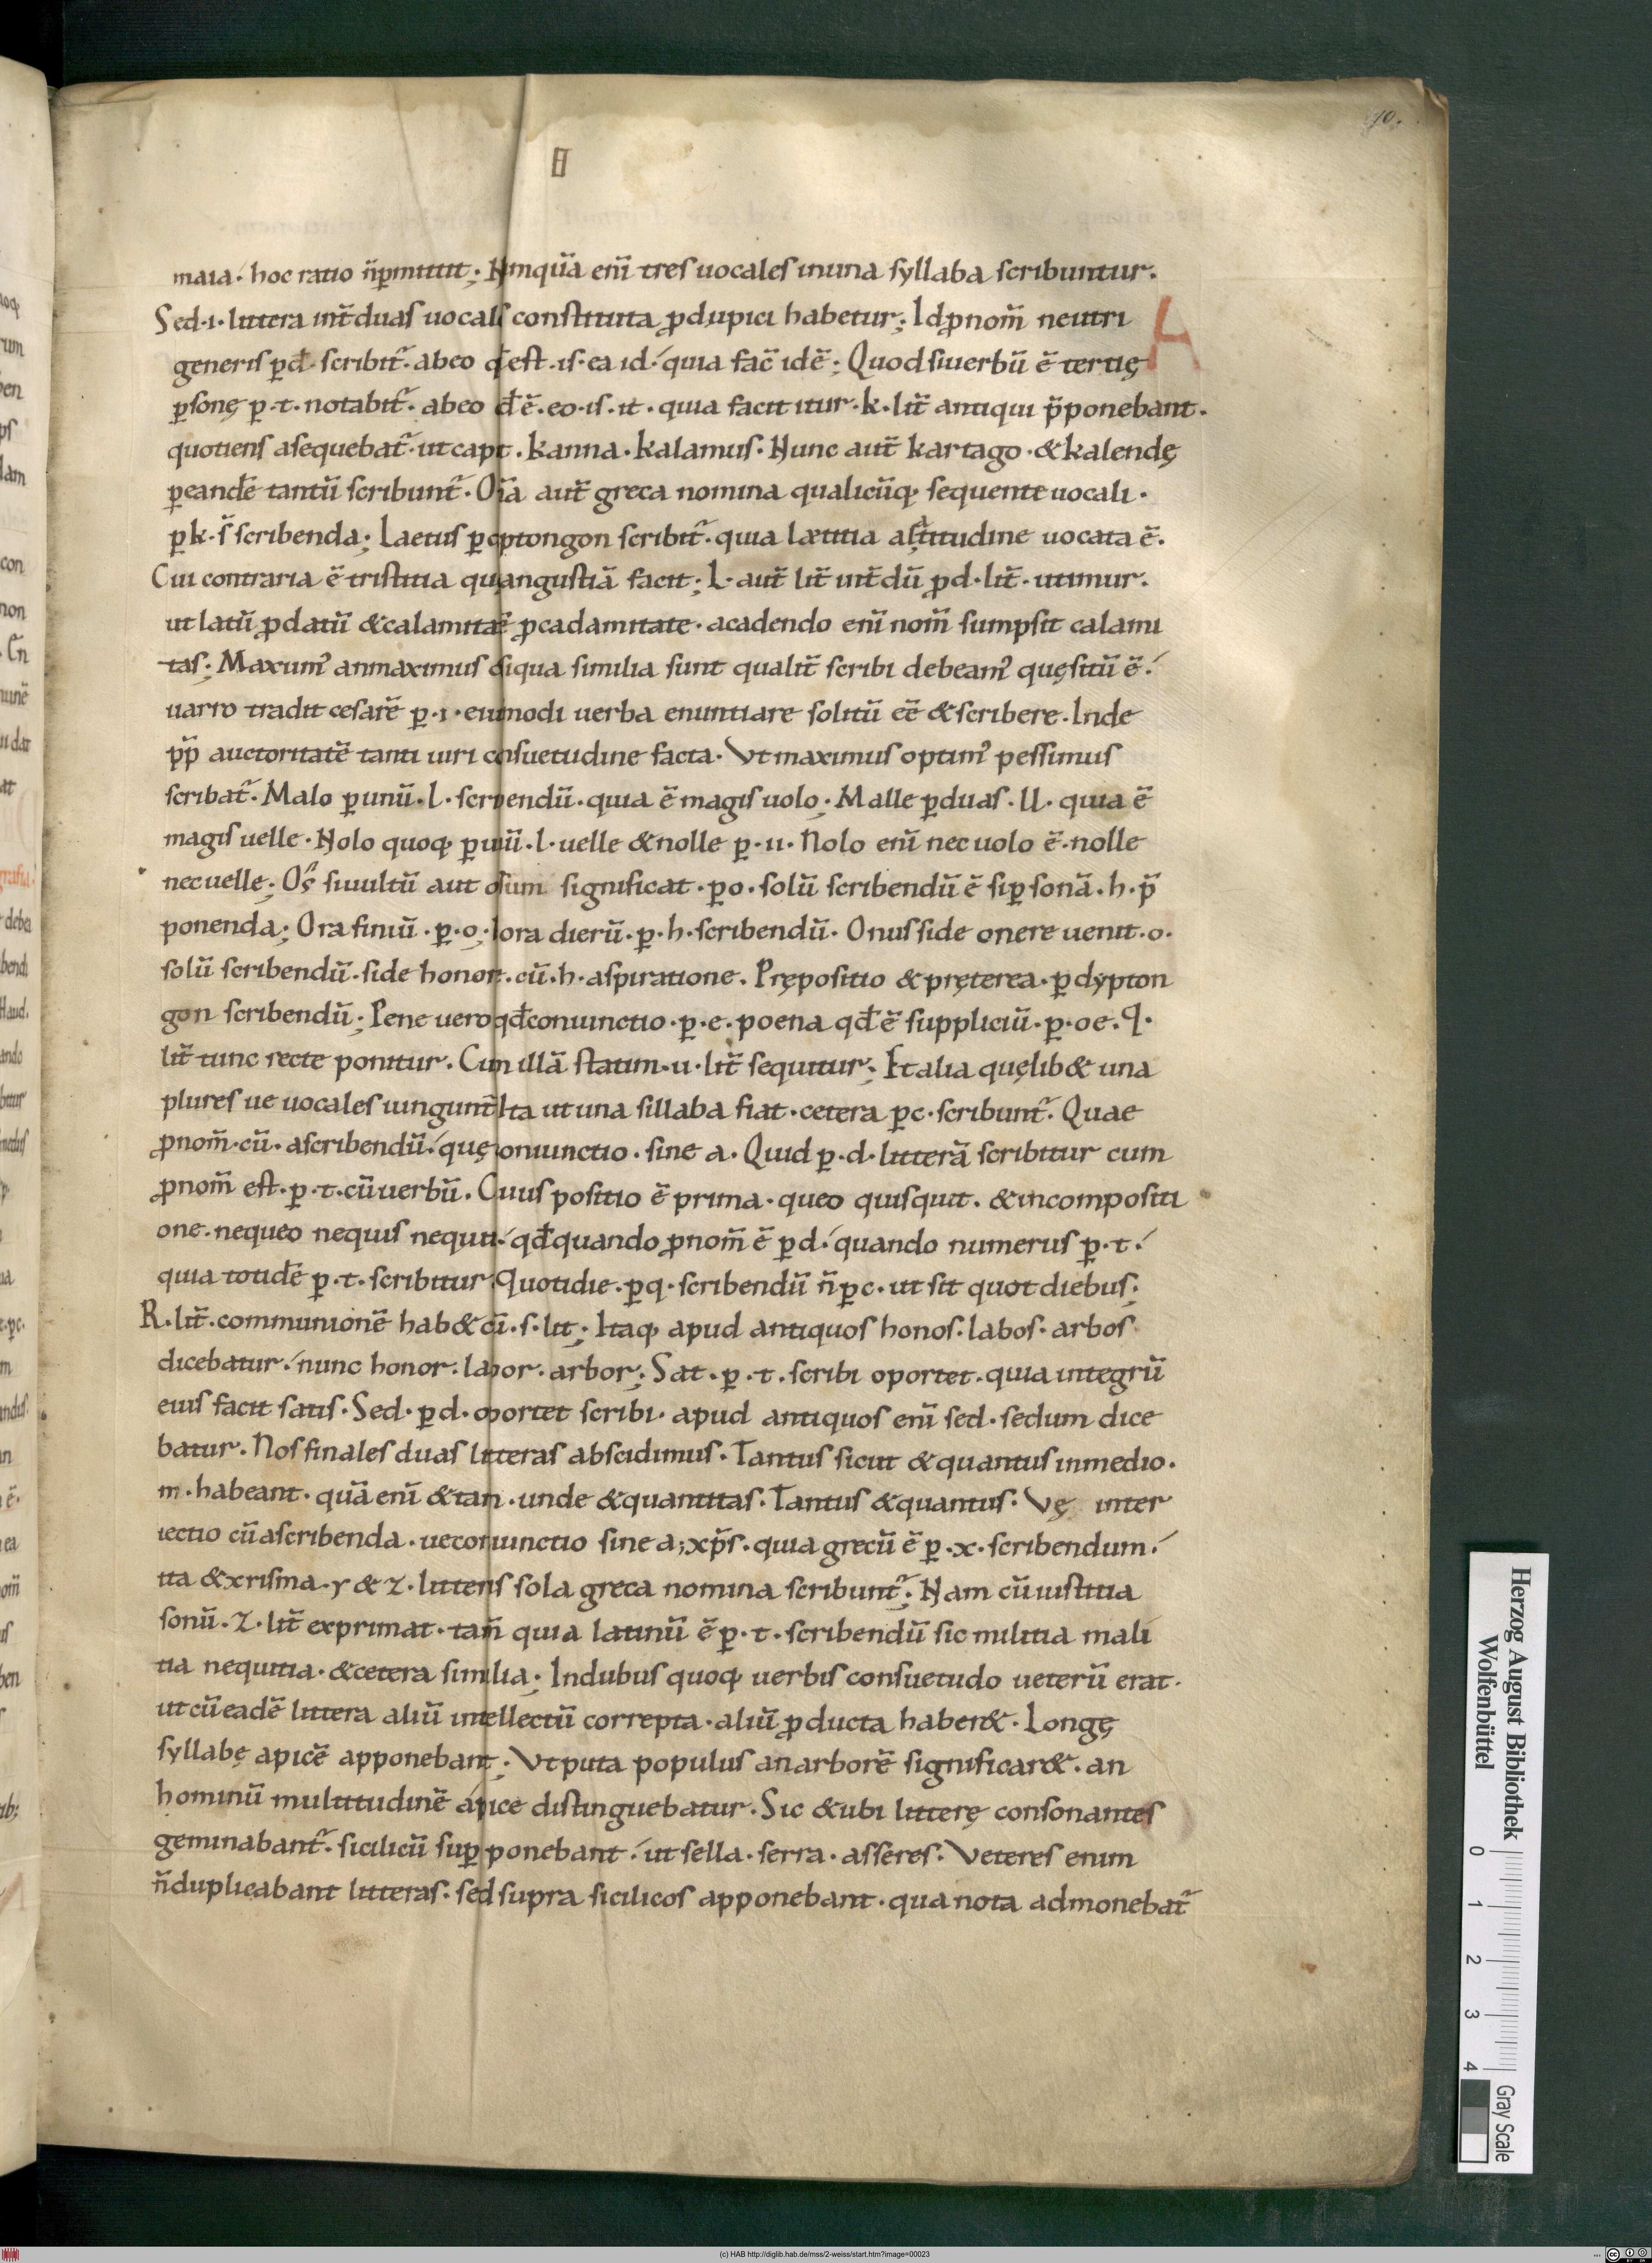 10.
maia· hoc ratio n̄ p̱mittit; Nunquā enī tres uocales inuna syllaba scribuntur.
Sed·i·littera int̄ duas uocalis constituta ꝓdupici habetur; Id ꝓnom̄ neutri
A
generis ꝑd· scribit̄· abeo qđ est·is·ea id· quia fac̄ idē; Quod siuerbū ē tertię
ꝑsonę ꝑ·t·notabit̄· abeo qđ ē·eo·is·it·quia facit itur·k·lit̄ antiqui p̄ponebant·
quotiens asequebat̄· ut capt·kanna·kalamus·Nunc aut̄ kartago·&kalendę
ꝑeandē tantū scribunt̄·Oīa aut̄ greca nomina qualicūq; sequente uocali·
ꝑk·s̄ scribenda; Laetus ꝑ dyptongon scribit̄·quia lætitia a latitudine uocata ē.
Cui contraria ē tristitia quę angustiā facit; L·aut̄ lit̄ int̄dū ꝓ d·lit̄·utimur.
ut latū ꝓ datū &calamitatē ꝓcadamitate·acadendo enī nom̄ sumpsit calami
tas; Maxum' anmaximus & siqua similia sunt qualit̄ scribi debeam' quęsitū ē·
uarro tradit cesarē ꝑ·i·eiusmodi uerba enuntiare solitū eē &scribere·Inde
p̄p̄ auctoritatē tanti uiri cōsuetudine facta·Vt maximus optim' pessimus
scribat̄·Malo ꝑunū·l·scribendū·quia ē magis uolo; Malle ꝑduas·ll·quia ē
magis uelle·Nolo quoq; ꝑ unū·l·uelle &nolle ꝑ·ii·Nolo enī nec uolo ē·nolle
nec uelle; Os siuultū aut osum significat·ꝑo·solū scribendū ē siꝑsonā·h·p̄
ponenda; Ora finiū·ꝑ·o; hora dierū·ꝑ·h·scribendū·Onus side onere uenit·o·
solū scribendū·side honore·cū·h·aspiratione·Prępositio &pręterea·ꝑ dypton
gon scribendū; Pene uero qđ coniunctio·ꝑ·e·poena qđ ē suppliciū·ꝑ·oe·q·
lit̄ tunc recte ponitur·Cum illā statim·u·lit̄ sequitur; Et alia quęlib& una
plures ue uocales iungunt̄ Ita ut una sillaba fiat·cetera ꝑc·scribunt̄·Quae
ꝓnom̄·cū·ascribendū· quę coniunctio·sine a·Quid ꝑ·d·litterā scribitur cum
ꝓnom̄ est·ꝑ·t·cū uerbū·Cuius positio ē prima·queo quisquit·&incompositi
one·nequeo nequis nequit· qđ quando ꝓnom̄ ē ꝑ d· quando numerus ꝑ·t·
quia totidē ꝑ·t·scribitur; Quotidie·ꝑq·scribendū n̄ ꝑc·ut sit quot diebus;
R·lit̄·communionē hab& cū·s·lit̄; Itaq; apud antiquos honos·labos·arbos
dicebatur· nunc honor·labor·arbor; Sat·ꝑ·t·scribi oportet·quia integrū
eius facit satis·Sed·ꝑ d·oportet scribi·apud antiquos enī sed·sedum dice
batur·Nos finales duas litteras abscidimus·Tantus sicut &quantus inmedio·
m·habeant·quā enī &tam·unde &quantitas·Tantus &quantus·Vę inter
iectio cū ascribenda·ueconiunctio sine a; xp̄s·quia grecū ē ꝑ·x·scribendum·
ita &xrisma·y & z·litteris sola greca nomina scribunt̄; Nam cū iustitia
sonū·z·lit̄ exprimat·tam̄ quia latinū ē ꝑ·t·scribendū sic militia mali
tia nequitia·&cetera similia; Indubus quoq; uerbis consuetudo ueterū erat·
ut cū eadē littera aliū intellectū correpta·aliū ꝓducta haber&·Longę
syllabę apicē apponebant; Vt puta populus an arborē significar&·an
hominū multitudinē apice distinguebatur·Sic &ubi litterę consonantes
geminabant̄·sicilicū suꝑponebant· ut sella·serra·asseres·Veteres enim
n̄ duplicabant litteras·sed supra sicilicos apponebant·qua nota admonebat̄
Herzog August Bibliothek
Wolfenbüttel
0 1 2 3 4
Gray Scale
(c) HAB http://diglib.hab.de/mss/2-weiss/start.htm?image=00023